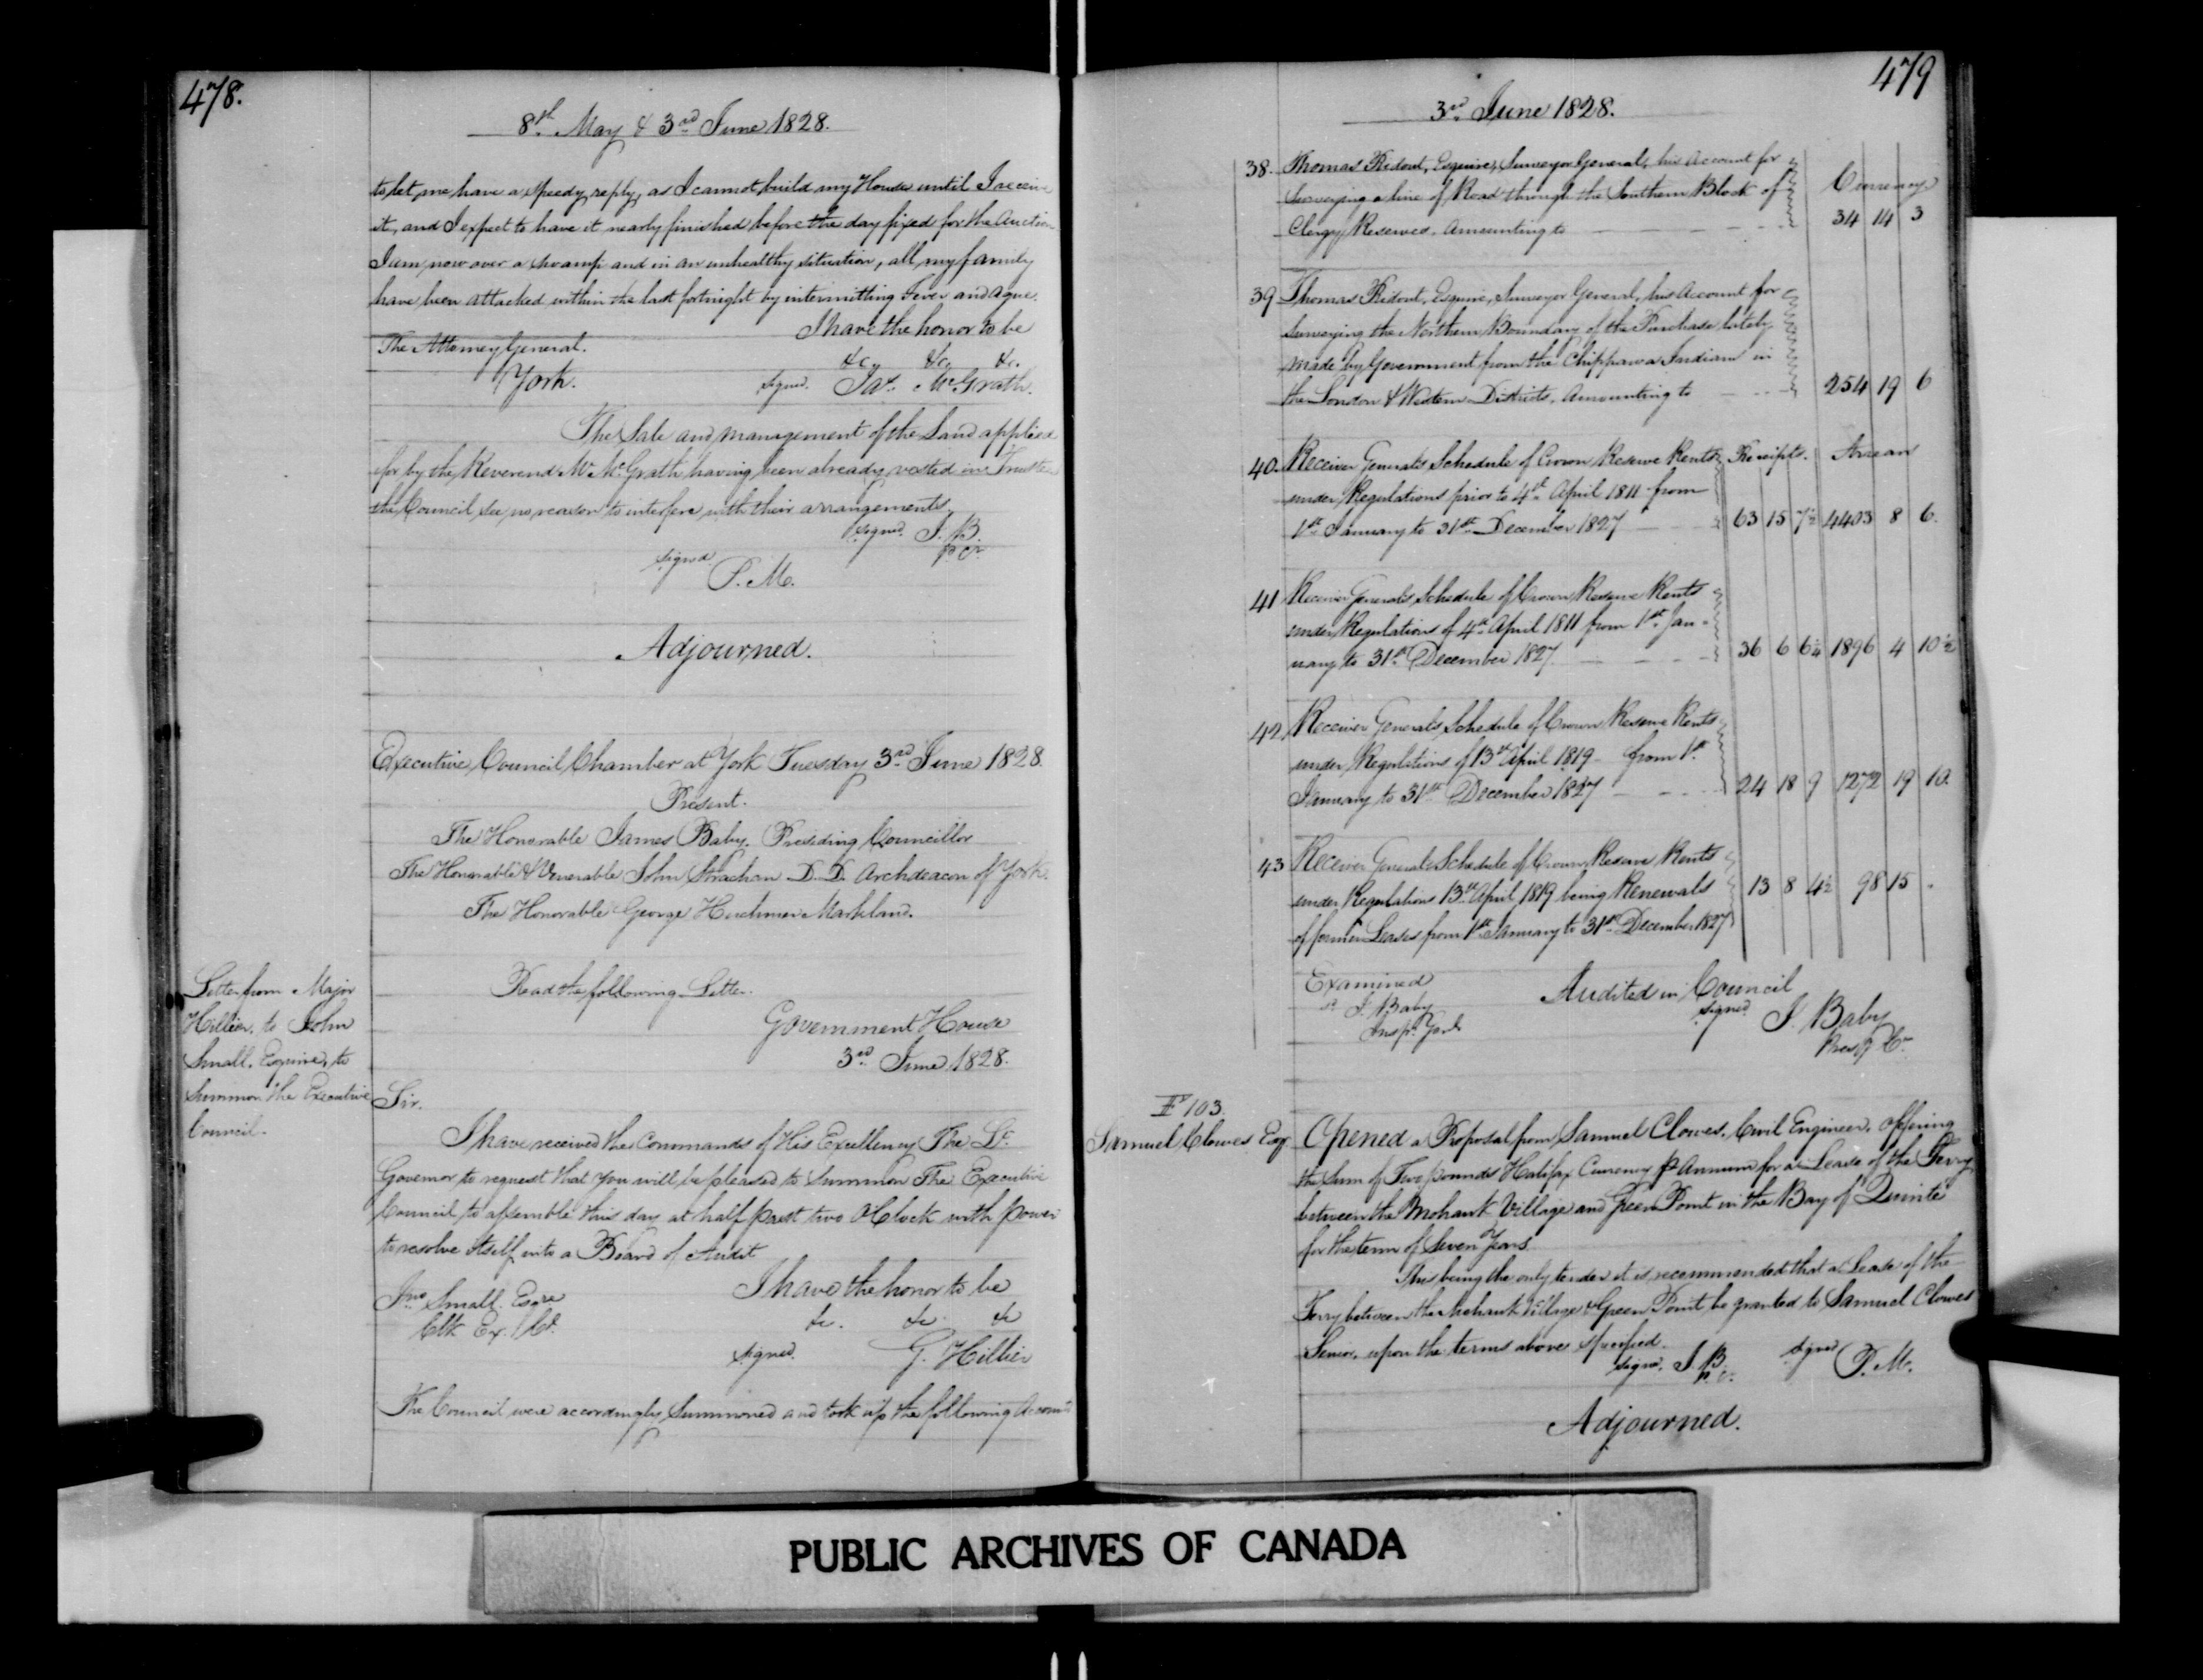 478.
8th May & 3rd June 1828.
to let me have a speedy reply, as I cannot build my House until I receive
it, and I expect to have it nearly finished before the day fixed for the Auction
I am now over a swamp and in an unhealthy situation, all my family
have been attacked within the last fortnight by intermitting Fever and Ague.
I have the honor to be
The Attorney General.
&c, &c, &c.
York.
signed. Jas. McGrath.
The Sale and management of the Land applied
for by the Reverend Mr McGrath having been already vested in Trustees
the Council see no reason to interfere with their arrangements.
signed. J. B.
P. C.
signed
P. M.
Adjourned.
Executive Council Chamber at York Tuesday 3rd June 1828.
Present.
The Honorable James Baby. Presiding Councillor
The Honorable & Venerable John Strachan D. D. Archdeacon of York.
The Honorable George Herchmer Markland.
Letter from Major
Hillier, to John
Small, Esquire, to
summon the Executive
Council.
Read the following Letter.
Government House
3rd June 1828.
Sir.
I have received the Commands of His Excellency The Lt.
Governor to request that you will be pleased to summon The Executive
Council to assemble this day at half past two OClock with power
to resolve itself into a Board of Audit
I have the honor to be
Jno Small. Esqre
Clk Ex. Cl.
&c. &c. &c
signed. G. Hillier
The Council were accordingly Summoned and took up the following Accounts
479
3rd June 1828.
38. Thomas Ridout, Esquire, Surveyor General, his Account for
surveying a line of Road through the Southern Block of
Clergy Reserves. Amounting to
Currency
34 14 3
39 Thomas Ridout, Esquire, Surveyor General, his Account for
surveying the Northern Boundary of the Purchase lately
made by Government from the Chippawa Indians in
the London & Western Districts. Amounting to 254 19 6
40. Receiver Generals Schedule of Crown Reserve Rents Receipts. Arrears
under Regulations prior to 4th April 1811 from
1st January to 31st December 1827 63 15 7½ 4403 8 6.
41 Receiver Generals Schedule of Crown Reserve Rents
under Regulations of 4th April 1811 from 1st Jan-
uary to 31st December 1827. 36 6 6¼ 1896 4 10½
42 Receiver Generals Schedule of Crown Reserve Rents
under Regulations of 13th April 1819 from 1st
January to 31st December 1827 24 18 9 1272 19 10.
43 Receiver Generals Schedule of Crown Reserve Rents
under Regulations 13th April 1819 being Renewals 13 8 4½ 98 15 .
of former Leases from 1st January to 31st December 1827
Examined
J. Baby
Insp. Genl.
Audited in Council
signed J. Baby
Presg Cr.
103.
Samuel Clowes Esqr
Opened a Proposal from Samuel Clowes, Civil Engineer, offering
the Sum of Two pounds Halifax Currency Pr Annum for a Lease of the Ferry
between the Mohawk Village and Green Point in the Bay of Quinte
for the term of Seven Years.
This being the only tender it is recommended that a Lease of the
Ferry between the Mohawk Village & Green Point be granted to Samuel Clowes
Senior, upon the terms above specified.
signd. J. B.
P. C.
signed P. M.
Adjourned.
PUBLIC ARCHIVES OF CANADA